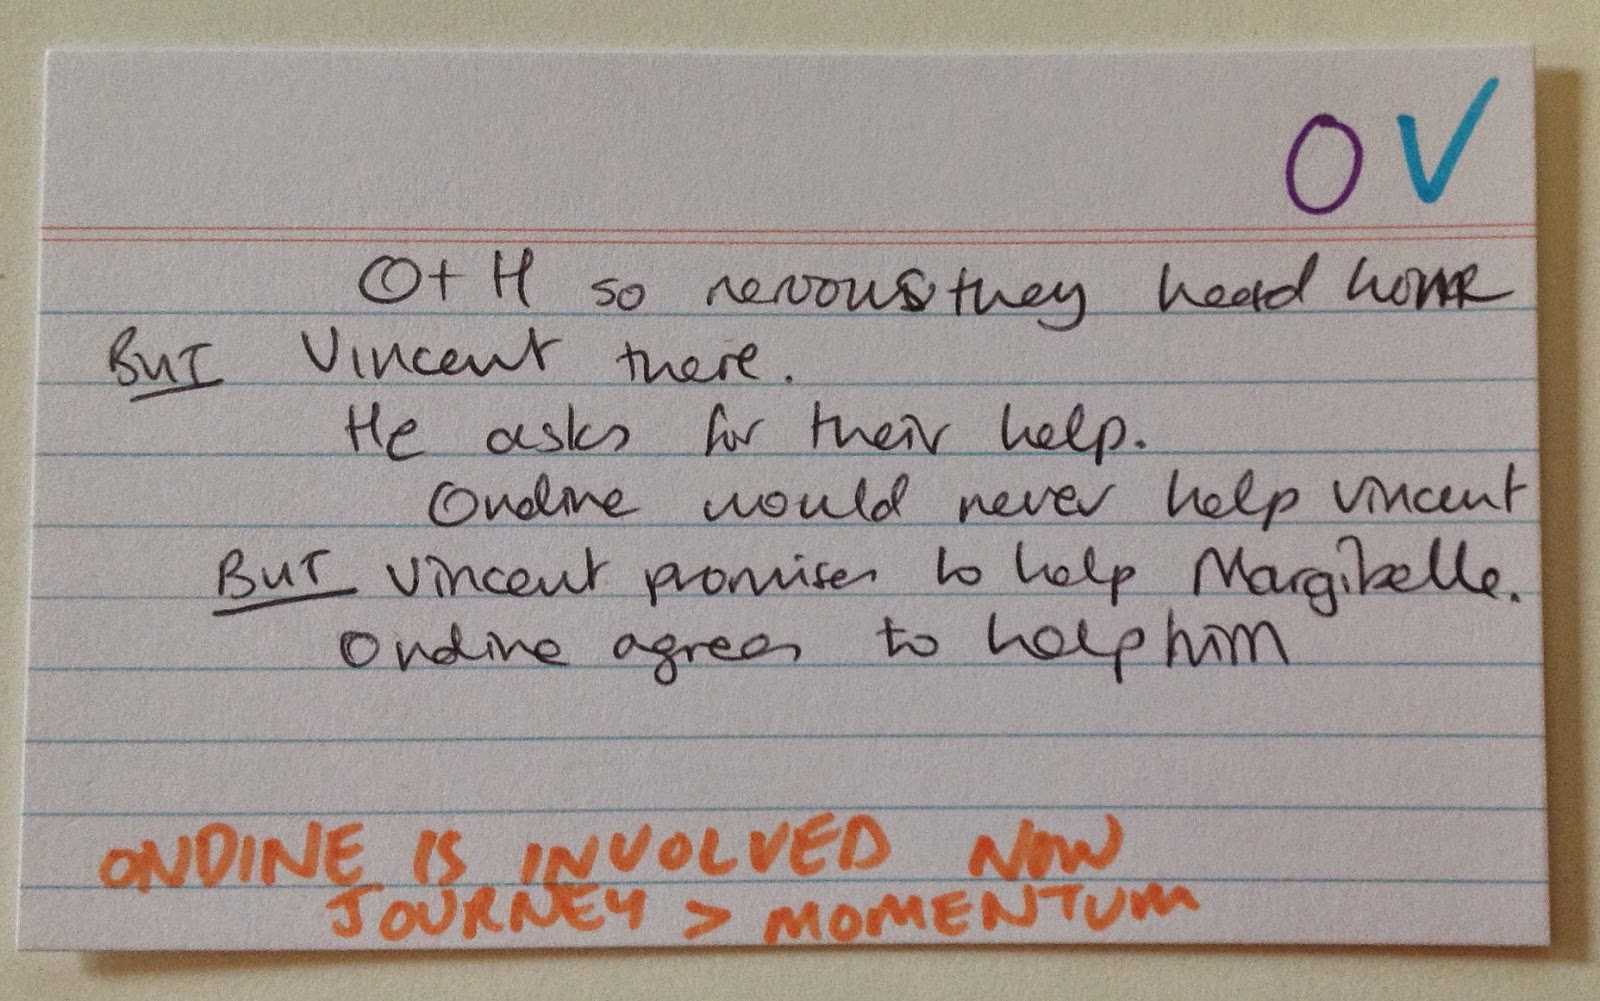 O V
O + H so nervous they head home
BUT Vincent there.
He asks for their help.
Ondine would never help Vincent
BUT Vincent promises to help Margibelle.
Ondine agrees to help him
ONDINE IS INVOLVED NOW
JOURNEY > MOMENTUM